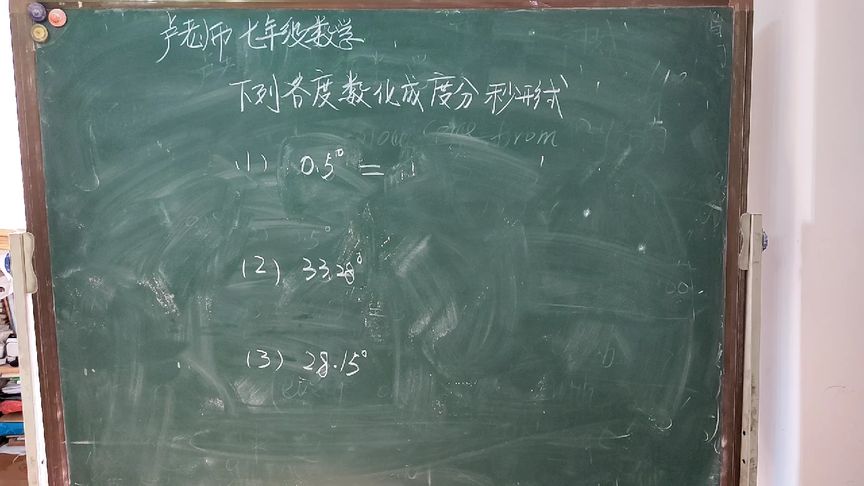 卢老师七年级数学
下列各度数化成度分秒形式
(1) 0.5° =
(2) 33.28°
(3) 28.15°